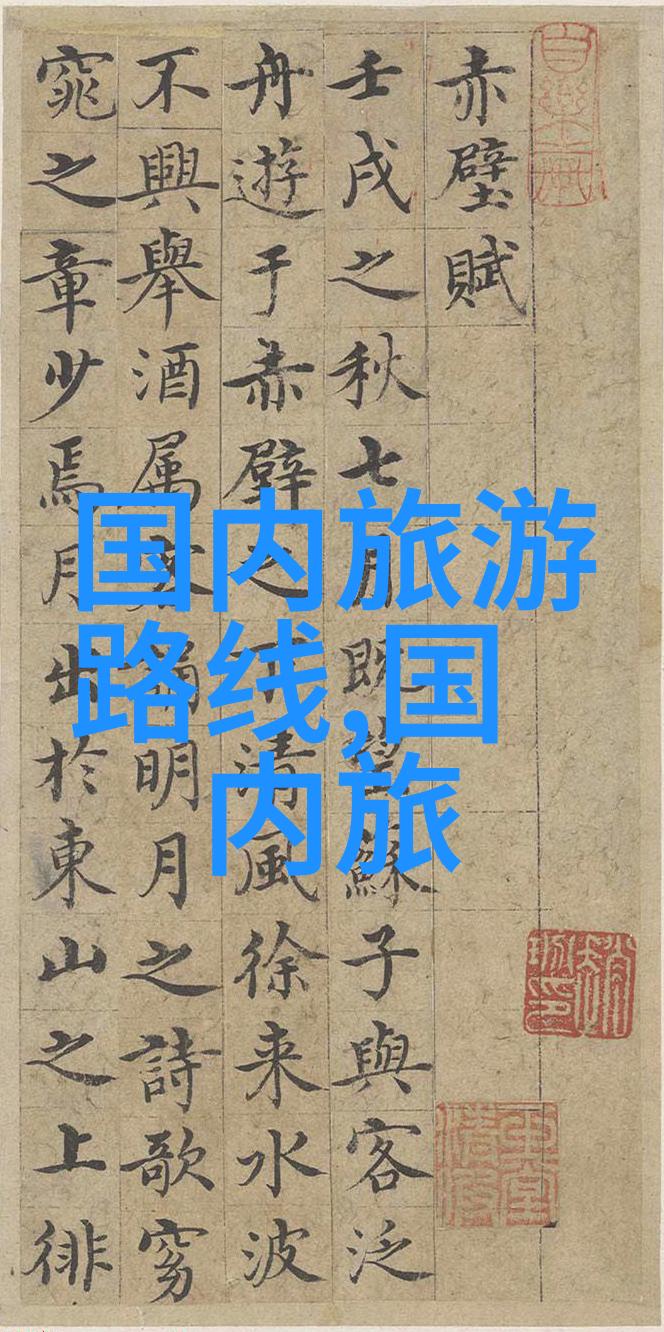 赤壁賦
壬戌之秋七月既望蘇子與客泛
舟遊于赤壁之下清風徐来水波
不興舉酒属客誦明月之詩歌窈
窕之章少焉月出於東山之上徘
国内旅游
路线,国
内旅